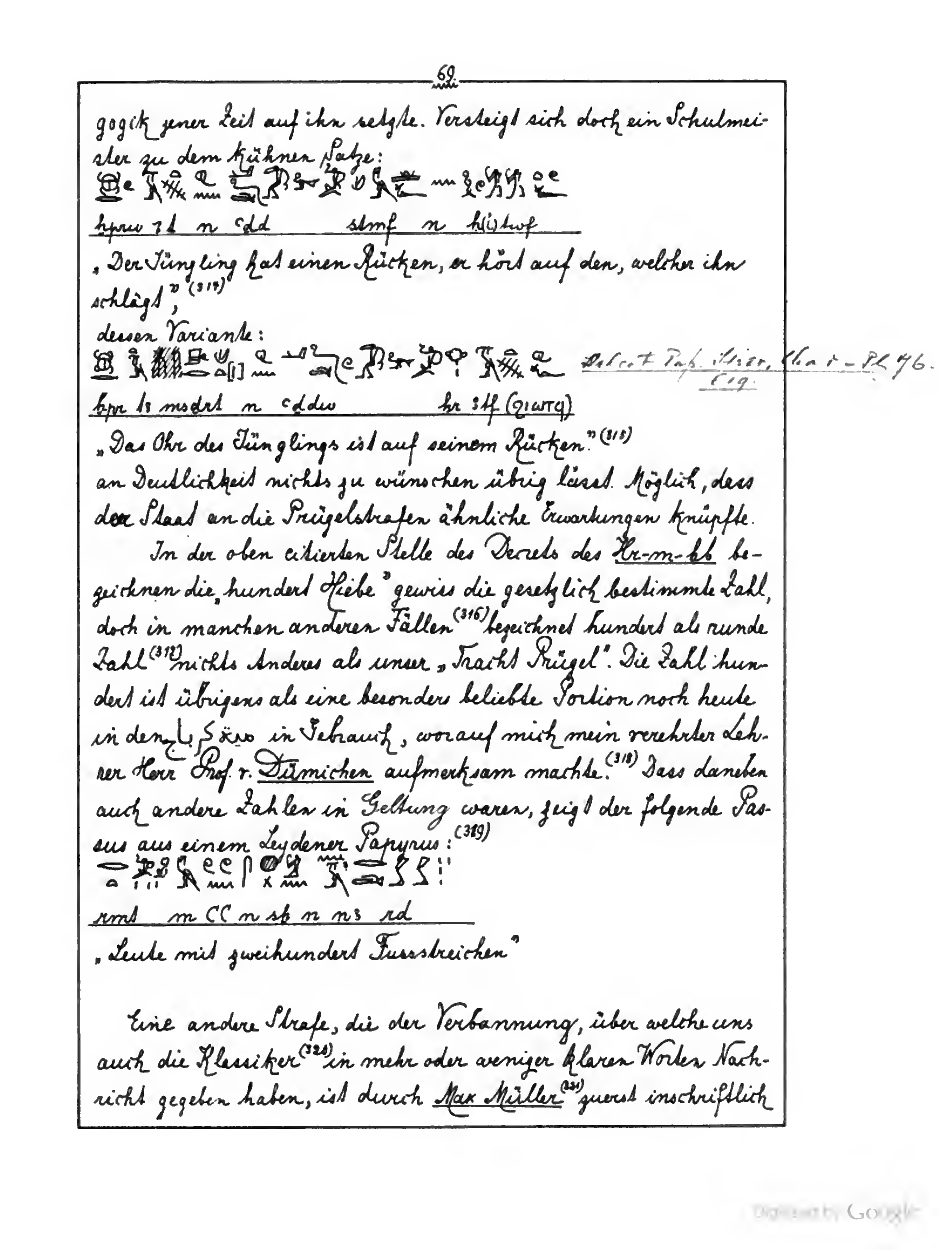 69.
gogik jener Zeit auf ihn setzte. Versteigt sich doch ein Schulmei-
ster zu dem kühnen Satze:
hprw ꜣt n cdd stmf n h(i)twf
„Der Jüngling hat einen Rücken, er hört auf den, welcher ihn
schlägt", (314)
dessen Variante:
hpr ls msdrt n cddw hr ꜣtf
„Das Ohr des Jünglings ist auf seinem Rücken." (315)
an Deutlichkeit nichts zu wünschen übrig lässt. Möglich, dass
der Staat an die Prügelstrafen ähnliche Erwartungen knüpfte.
In der oben citierten Stelle des Decrets des Hr-m-hb be-
zeichnen die „hundert Hiebe" gewiss die gesetzlich bestimmte Zahl,
doch in manchen anderen Fällen (316) bezeichnet hundert als runde
Zahl (317) nichts Anderes als unser „Tracht Prügel". Die Zahl hun-
dert ist übrigens als eine besonders beliebte Portion noch heute
in den in Gebrauch, worauf mich mein verehrter Leh-
rer Herr Prof. v. Dümichen aufmerksam machte. (318) Dass daneben
auch andere Zahlen in Geltung waren, zeigt der folgende Pas-
sus aus einem Leydener Papyrus: (319)
rmt m CC n sh n nꜣ rd
„Leute mit zweihundert Fussstreichen"
Eine andere Strafe, die der Verbannung, über welche uns
auch die Klassiker (320) in mehr oder weniger klaren Worten Nach-
richt gegeben haben, ist durch Max Müller (321) zuerst inschriftlich
Digitized by Google